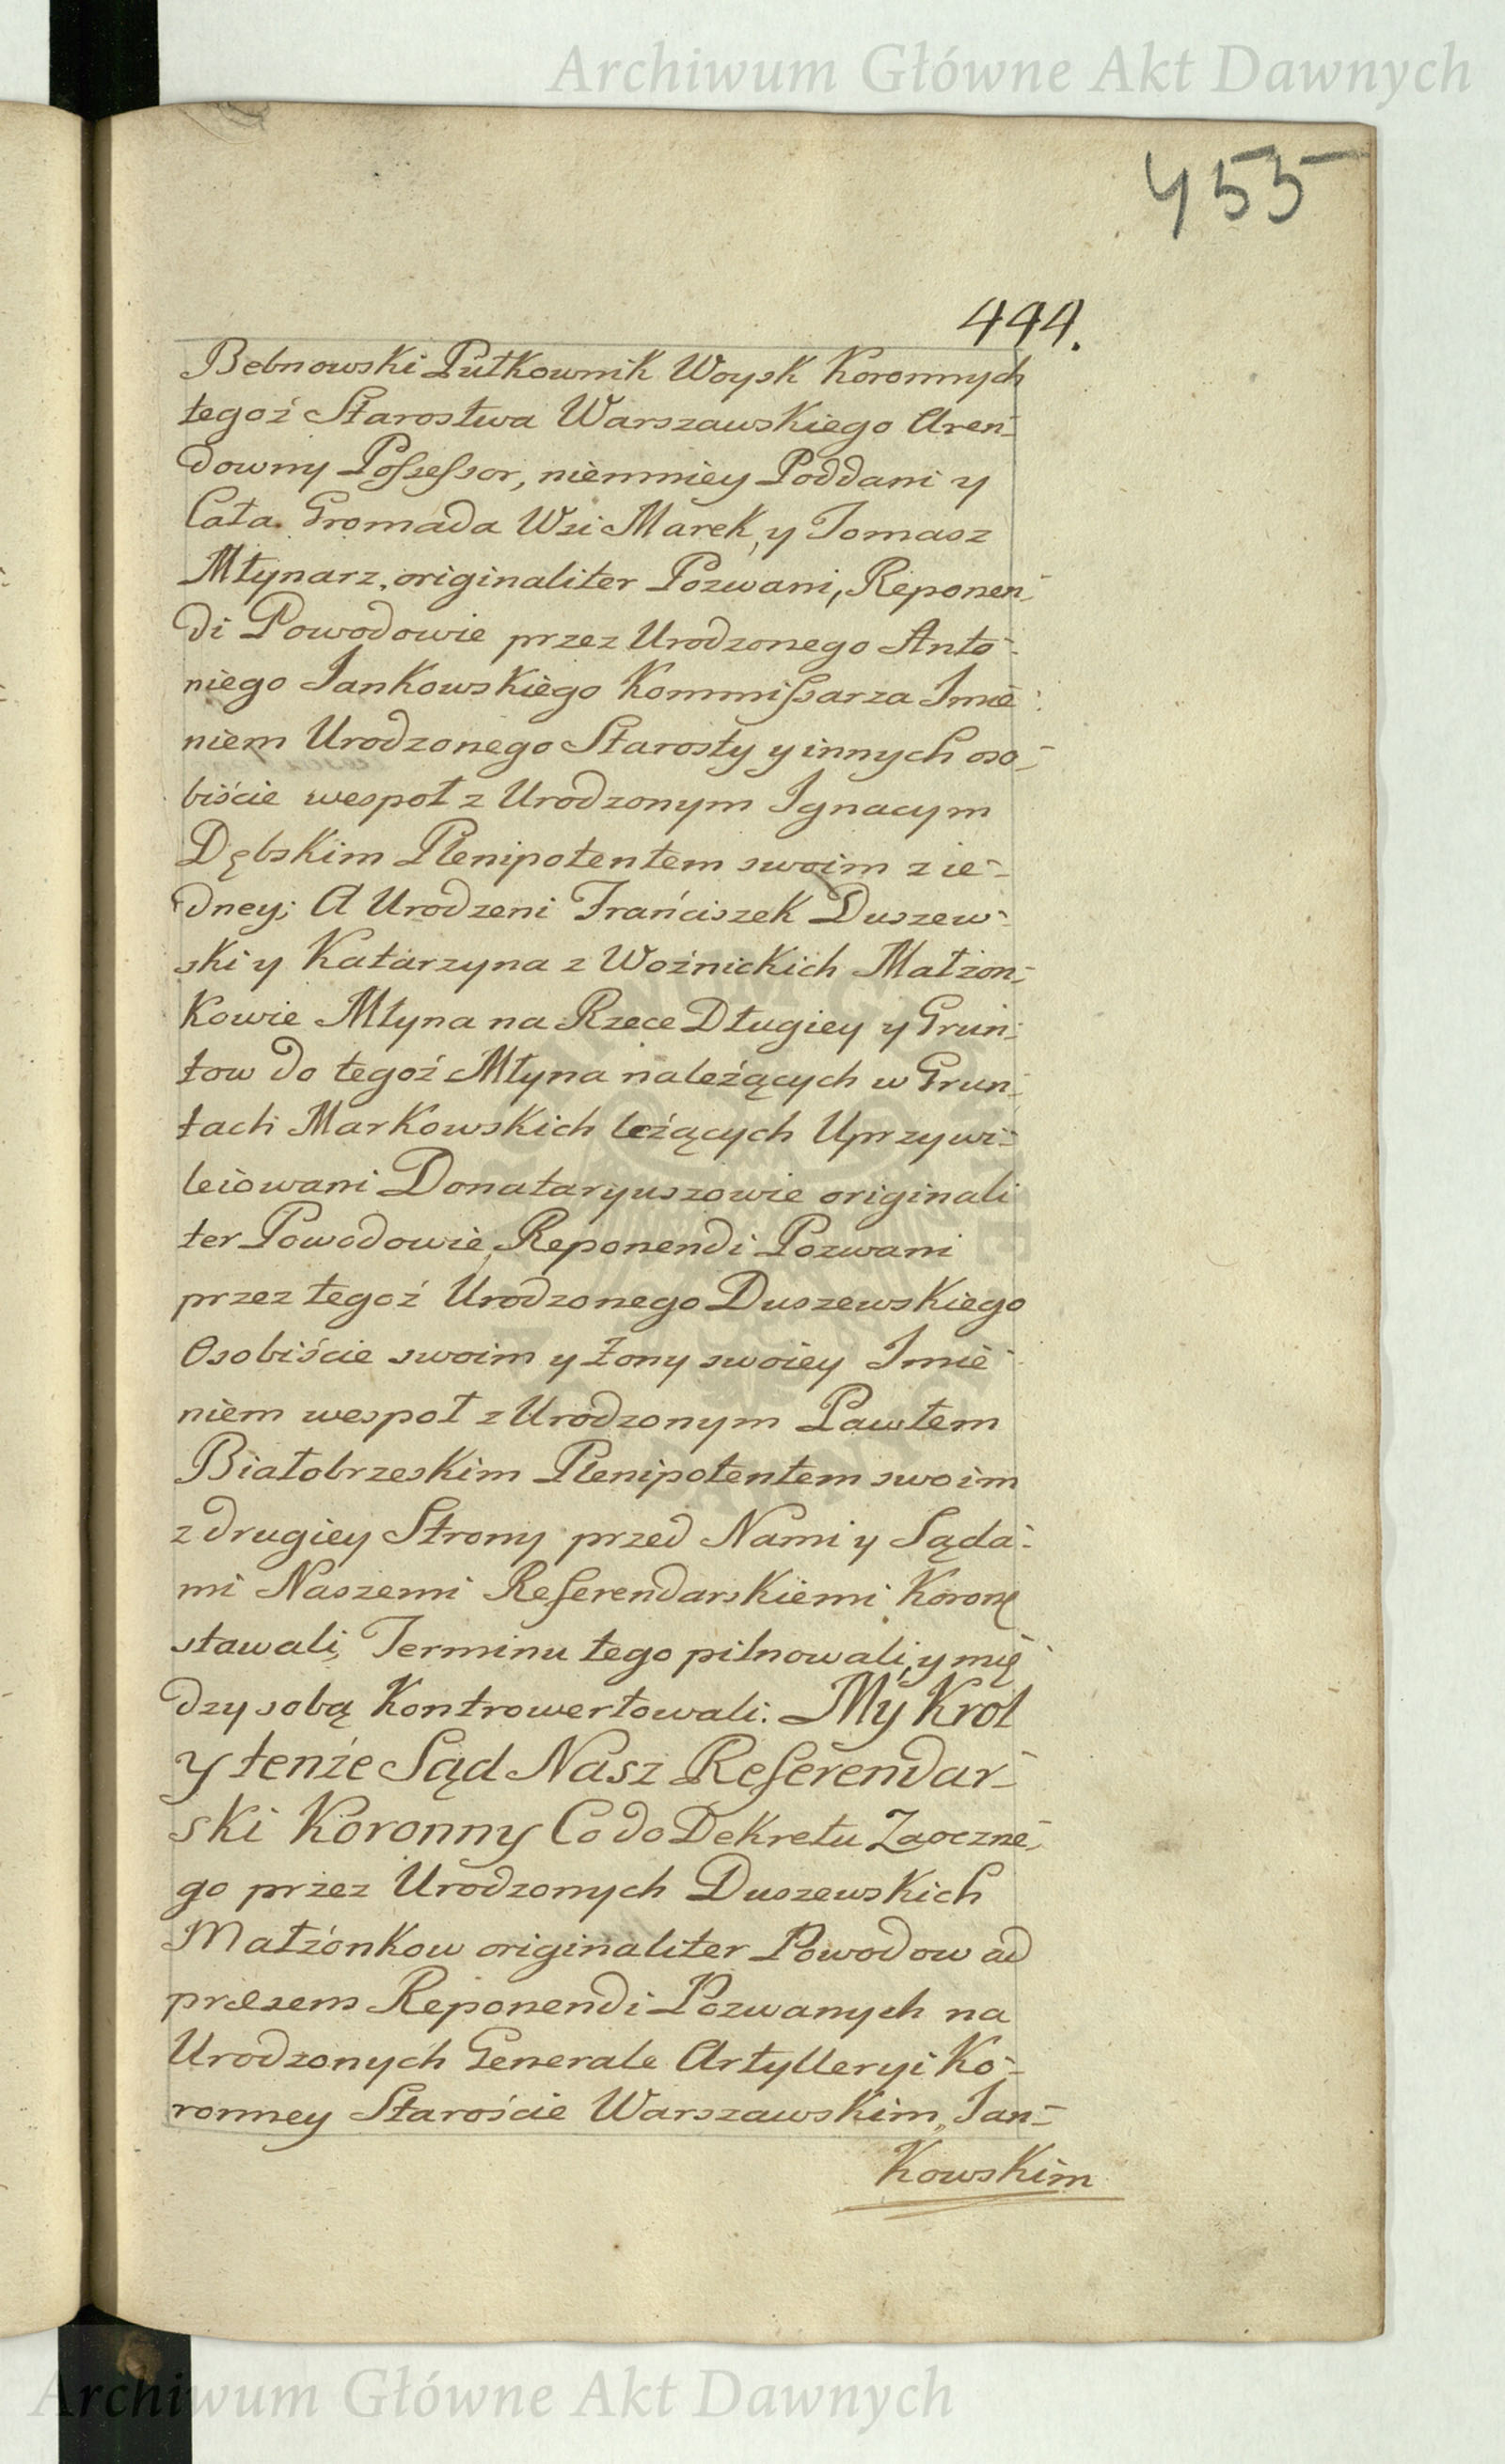 Archiwum Główne Akt Dawnych
455
444.
Bebnowski Pułkownik Woysk Koronnych
tegoż Starostwa Warszawskiego Aren-
downy Possessor, niemniey Poddani y
Cała Gromada Wsi Marek, y Tomasz
Młynarz, originaliter Pozwani, Reponen-
di Powodowie przez Urodzonego Anto-
niego Jankowskiego Kommissarza Jmie-
niem Urodzonego Starosty y innych oso-
biście wespoł z Urodzonym Jgnacym
Dębskim Plenipotentem swoim z ie-
dney; A Urodzeni Franciszek Duszew-
ski y Katarzyna z Woźnickich Małżon-
kowie Młyna na Rzece Długiey y Grun-
tow do tegoż Młyna należących w Grun-
tach Markowskich leżących Uprzywi-
leiowani Donataryuszowie originali
ter Powodowie, Reponendi Pozwani
przez tegoż Urodzonego Duszewskiego
Osobiście swoim y żony swoiey Jmie-
niem wespoł z Urodzonym Pawłem
Białobrzeskim Plenipotentem swoim
z drugiey Strony przed Nami y Sąda-
mi Naszemi Referendarskiemi Koron
stawali, Terminu tego pilnowali, y mię
dzy sobą Kontrowertowali. My Krol
y tenże Sąd Nasz Referendar-
ski Koronny Co do Dekretu Zaoczne-
go przez Urodzonych Duszewskich
Małżonkow originaliter Powodow ad
præsens Reponendi Pozwanych na
Urodzonych Generale Artylleryi Ko-
ronney Staroście Warszawskim, Jan-
Kowskim
Archiwum Główne Akt Dawnych